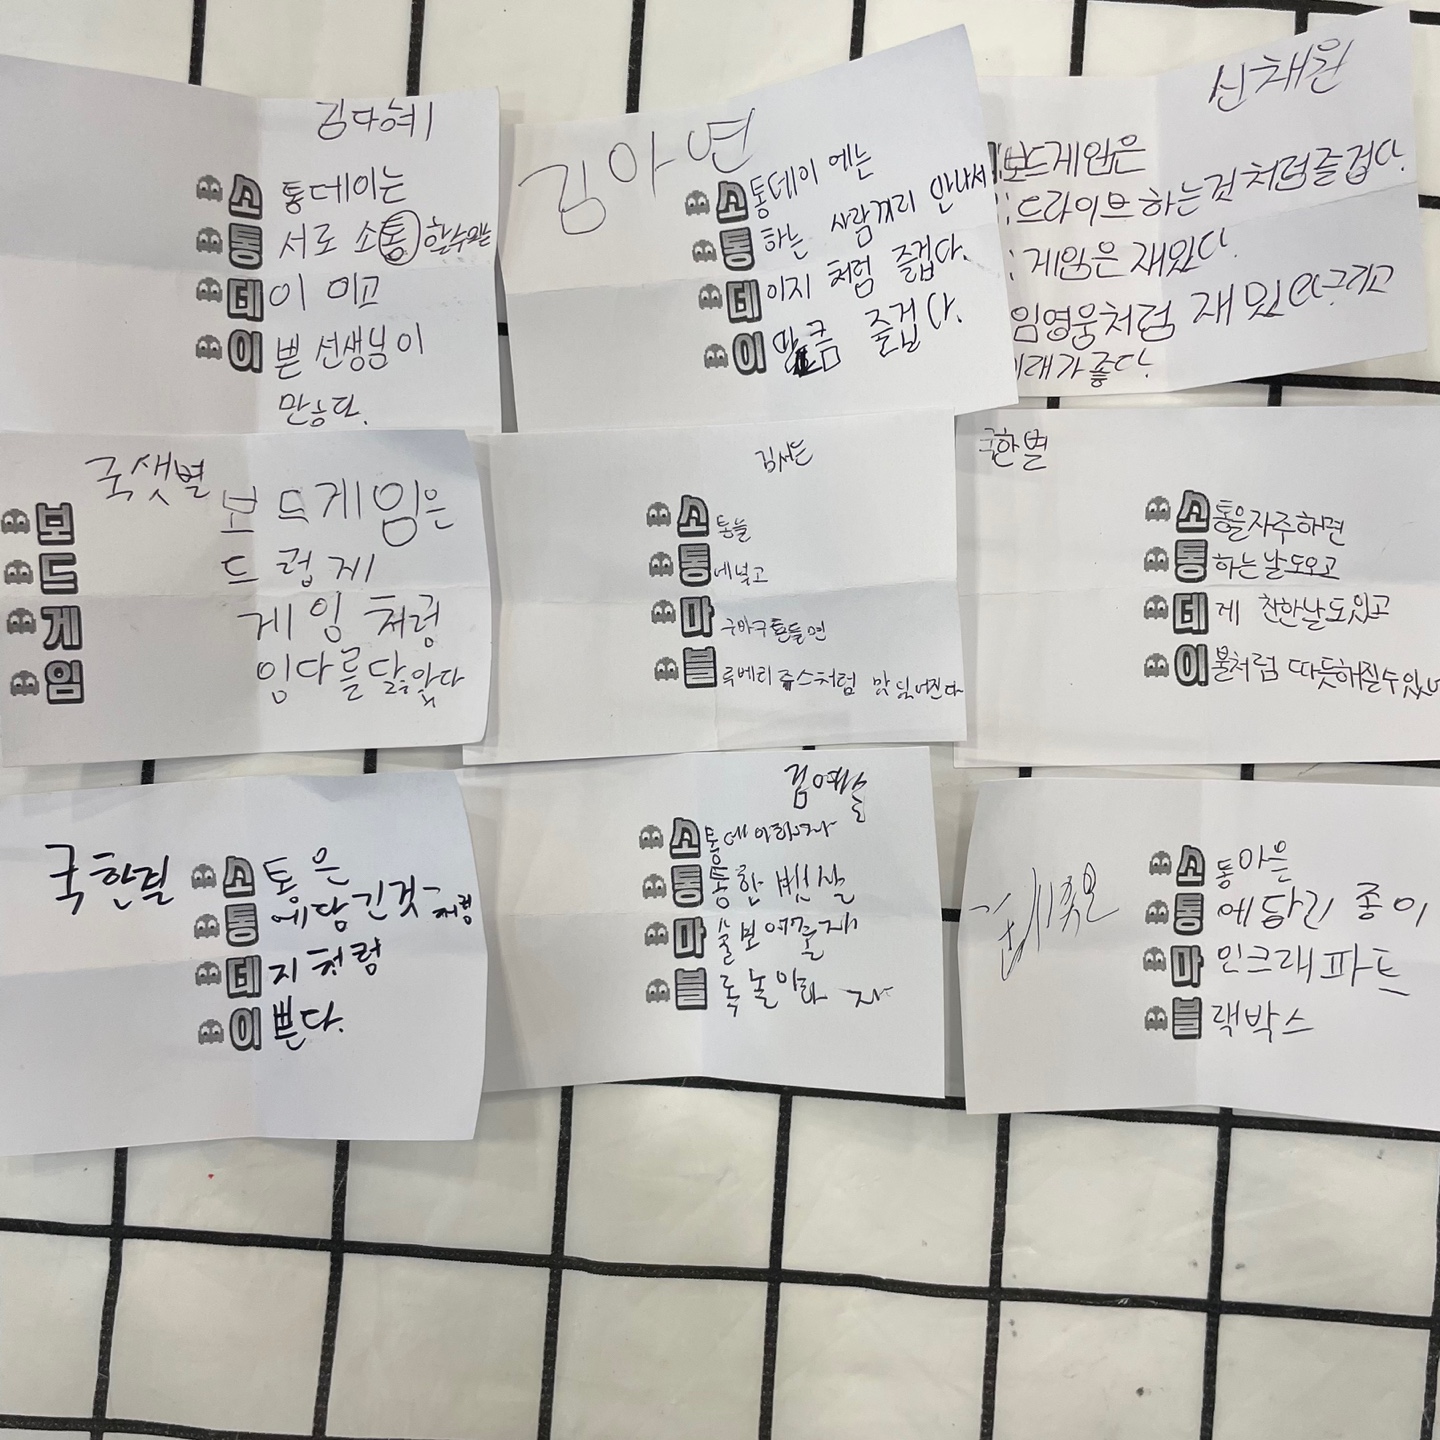 김다혜
소 통데이는
통 서로 소통 할수있는
데 이 이고
이 쁜 선생님이
많다.
김아연
소 통데이 에는
통 하는 사람끼리 만나서
데 이지 처럼 즐겁다.
이 만큼 즐겁다.
신채원
보드게임은
드라이브하는것처럼즐겁다.
게임은 재밌다.
임영웅처럼 재밌다그리고
노래가좋다.
국샛별
보 보드게임은
드 드럽게
게 게임 처럼
임 임다를닮았다
김서은
소 통늘
통 에넣고
마 구마구흔들면
블 루베리쥬스처럼 맛있어진다
국한별
소 통을자주하면
통 하는날도오고
데 게 찬한날도있고
이 불처럼 따듯해질수있
국한빛
소 통은
통 에담긴것처럼
데 지처럼
이 쁘다.
김예슬
소 통데이하자
통 통한 뱃살
마 술보여줄게
블 록놀이하 자
소 동아은
통 에달린 종이
마 인크래파트
블 랙박스